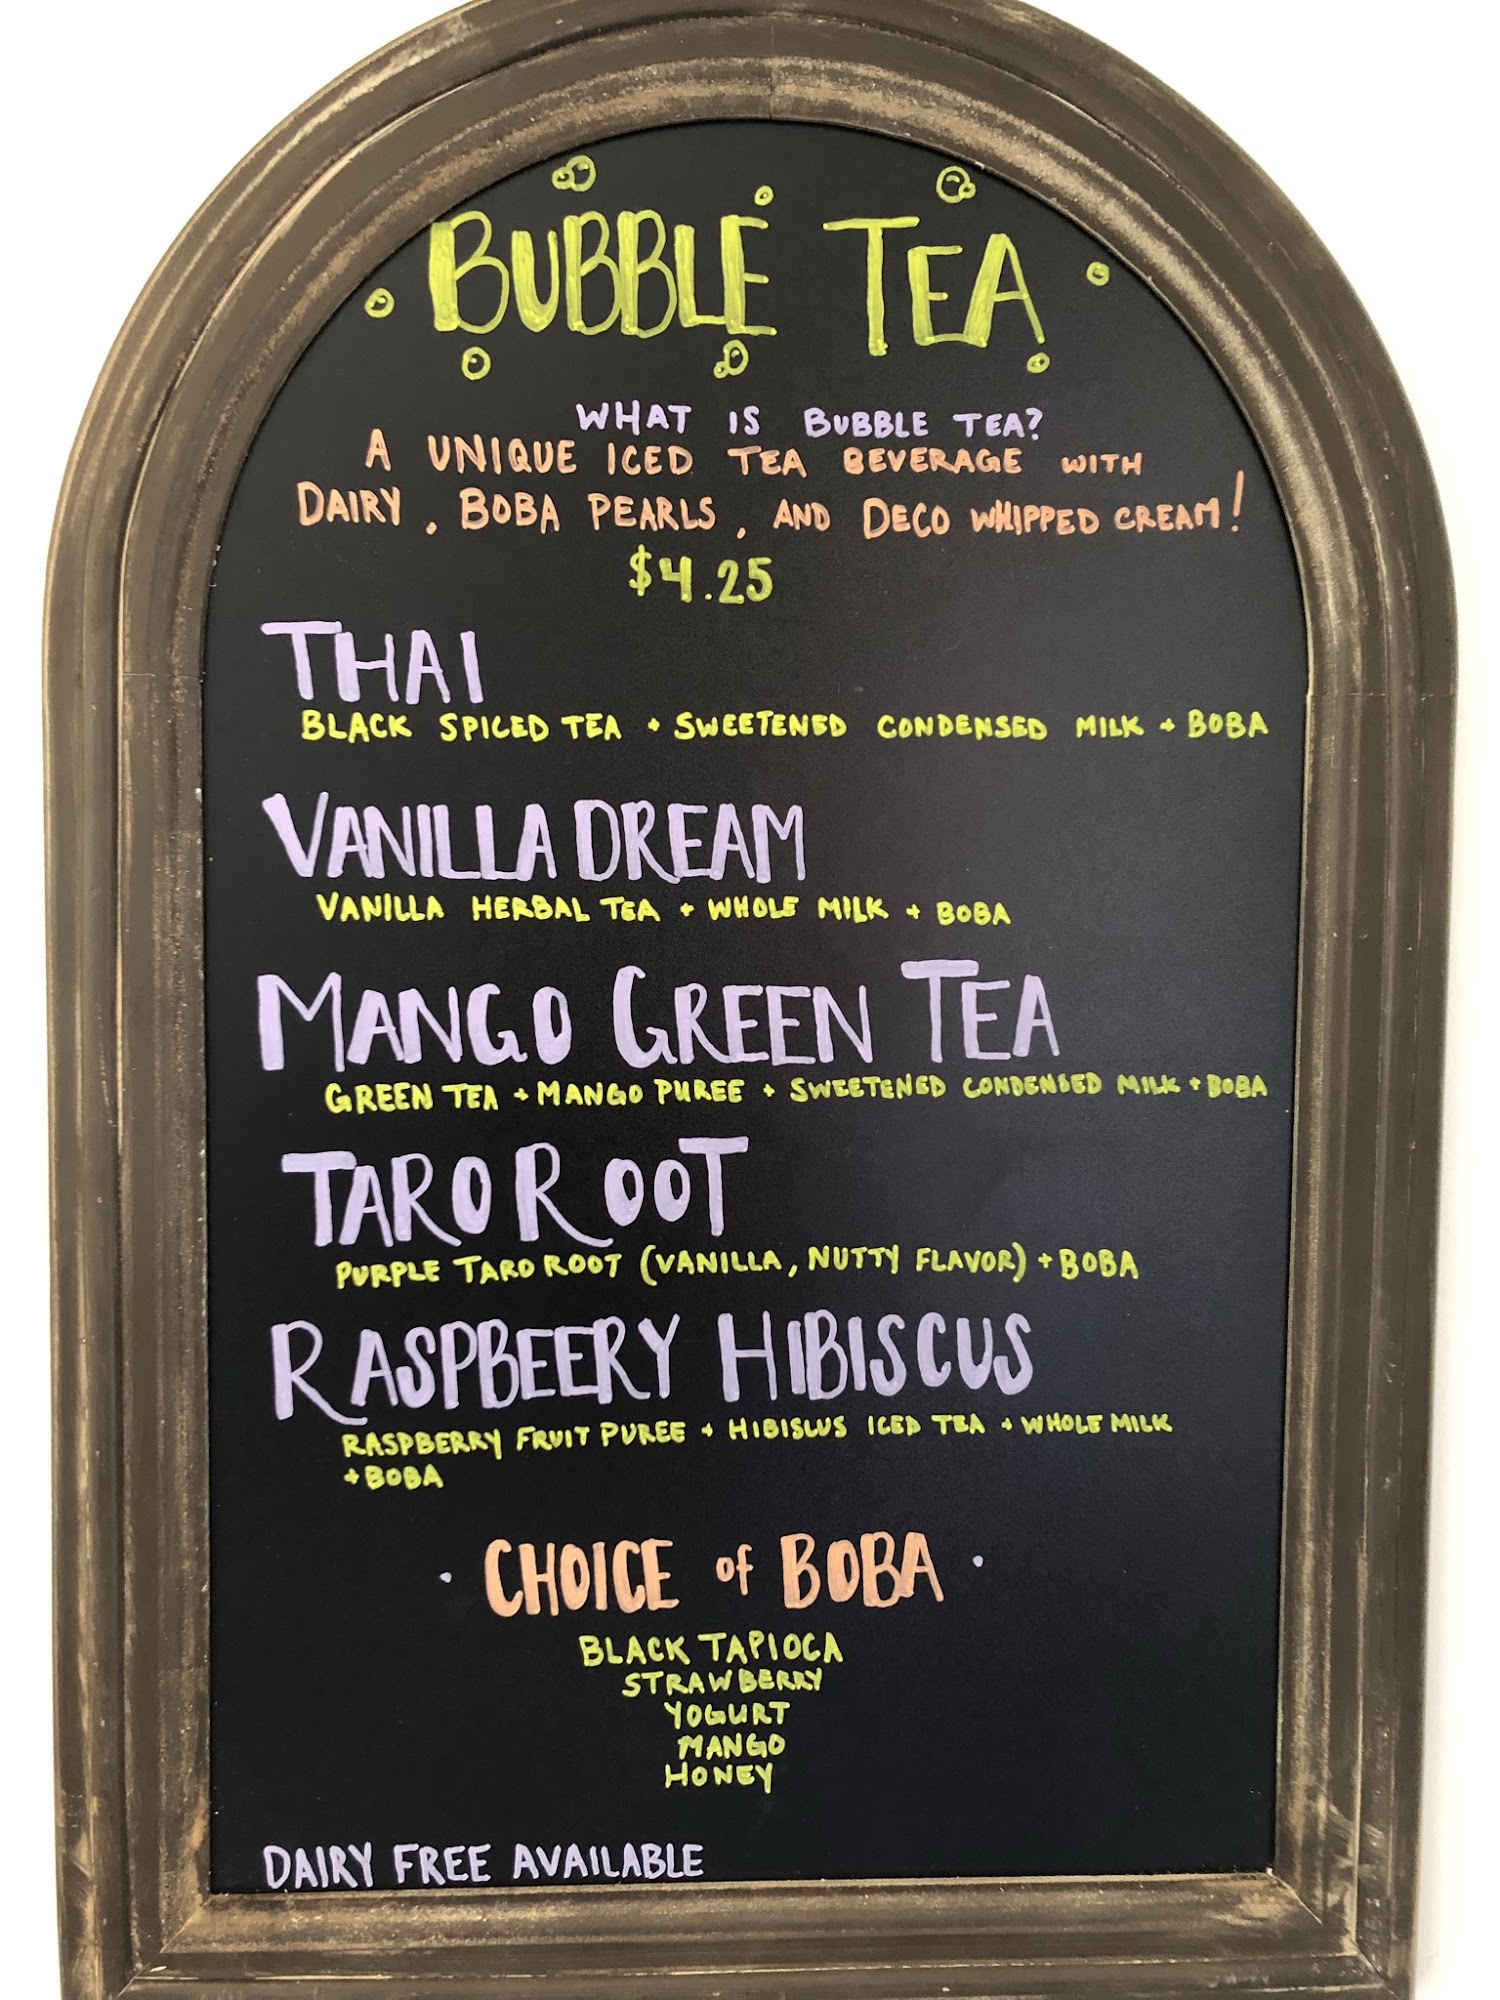 BUBBLE TEA
WHAT IS BUBBLE TEA?
A UNIQUE ICED TEA BEVERAGE WITH
DAIRY, BOBA PEARLS, AND DECO WHIPPED CREAM!
$4.25
THAI
BLACK SPICED TEA + SWEETENED CONDENSED MILK + BOBA
VANILLA DREAM
VANILLA HERBAL TEA + WHOLE MILK + BOBA
MANGO GREEN TEA
GREEN TEA + MANGO PUREE + SWEETENED CONDENSED MILK + BOBA
TARO ROOT
PURPLE TARO ROOT (VANILLA, NUTTY FLAVOR) + BOBA
RASPBEERY HIBISCUS
RASPBERRY FRUIT PUREE + HIBISCUS ICED TEA + WHOLE MILK
+ BOBA
· CHOICE of BOBA ·
BLACK TAPIOCA
STRAWBERRY
YOGURT
MANGO
HONEY
DAIRY FREE AVAILABLE